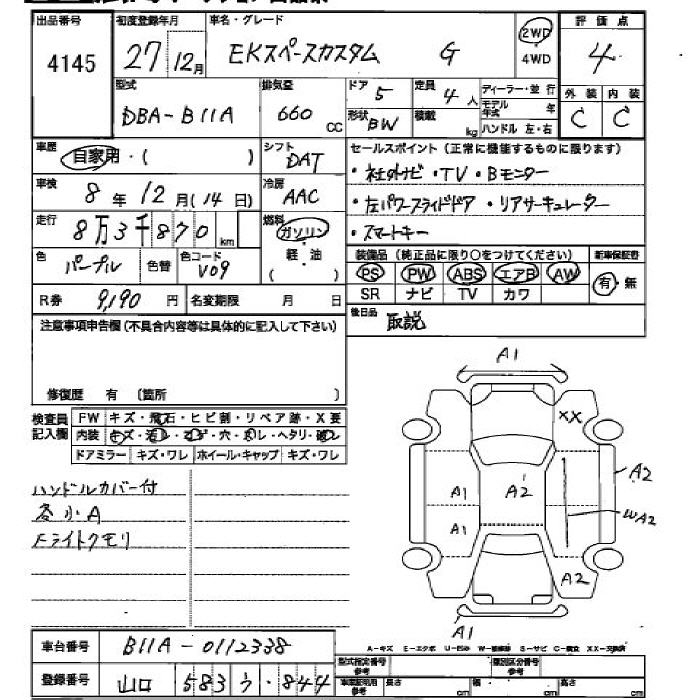 出品番号 初度登録年月 車名・グレード 評価点
4145 27 12月 EKスペースカスタム G 2WD 4WD 4
型式 排気量 ドア 定員 ディーラー・並行 外装 内装
DBA-B11A 660 CC 5 4人 モデル年式 年 C C
形状 BW 積載 kg ハンドル 左・右
車歴 自家用・( ) シフト DAT セールスポイント(正常に機能するものに限ります)
車検 8年12月(14日) 冷房 AAC ・社外ナビ・TV・Bモニター
走行 8万3千870km 燃料 ガソリン ・左パワースライドドア・リアサーキュレーター
軽・油 ・スマートキー
色 パープル 色替 色コード V09 ( ) 装備品(純正品に限り○をつけてください) 新車保証書
PS PW ABS エアB AW 有・無
R券 9,190円 名変期限 月 日 SR ナビ TV カワ
注意事項申告欄(不具合内容等は具体的に記入して下さい) 後日品 取説
修復歴 有 〔箇所 〕
検査員記入欄 FW キズ・飛石・ヒビ割・リペア跡・X要
内装 キズ・ ・ ・穴・ ・ヘタリ・
ドアミラー キズ・ワレ ホイール・キャップ キズ・ワレ
ハンドルカバー付
各小A
ヘッドライトクモリ
A1
XX
A2
A1 A2
WA2
A1
A2
A1
A-キズ E-エクボ U-凹み W-補修跡 S-サビ C-腐食 XX-交換済
車台番号 B11A-0112338
型式指定番号 参考 類別区分番号 参考
登録番号 山口 583 う ・844
車庫証明用 参考 長さ cm 幅 cm 高さ cm